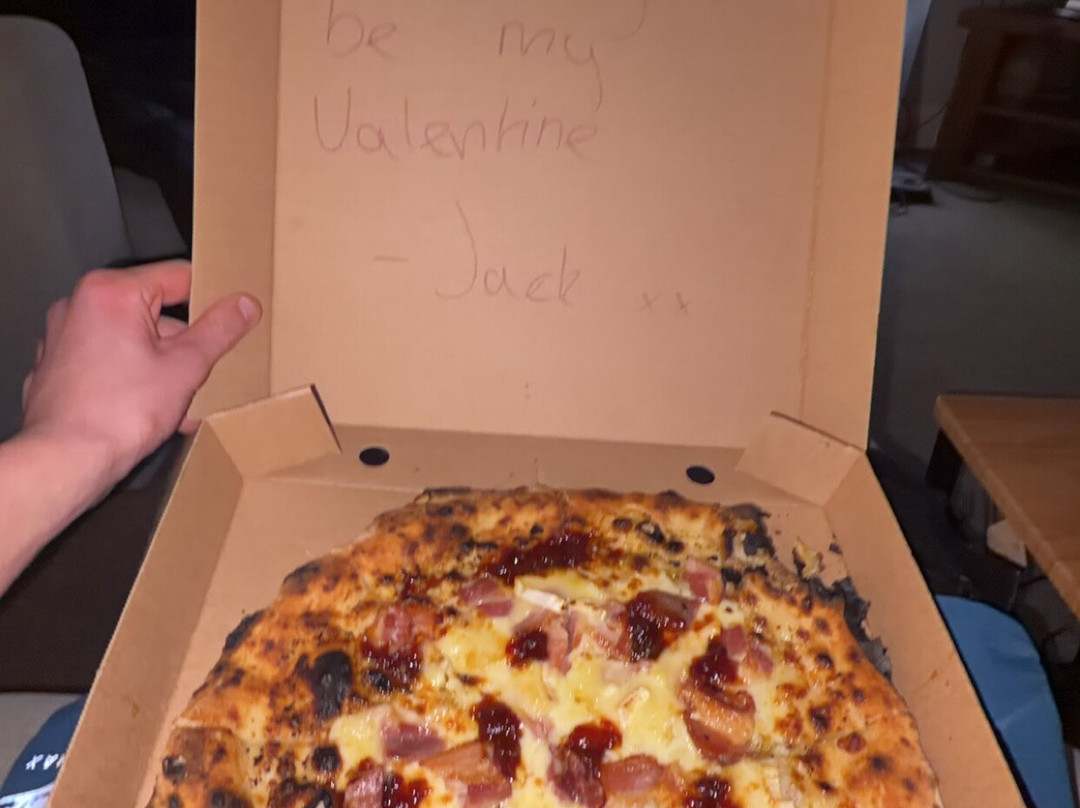 be my
Valentine
- Jack xx